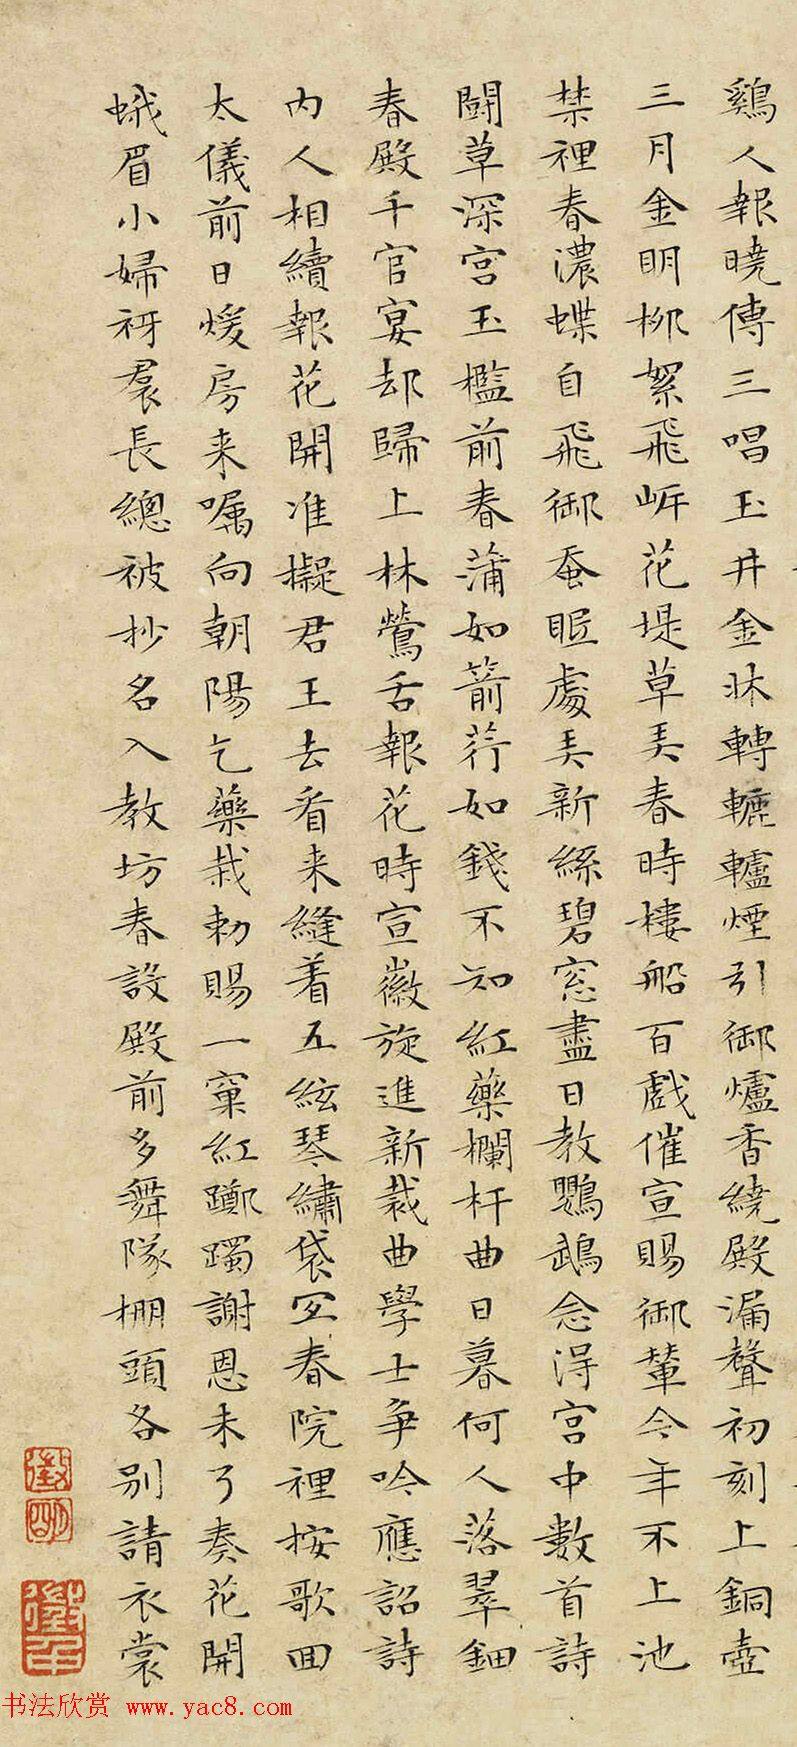 鷄人報曉傳三唱玉井金牀轉轆轤煙引御爐香繞殿漏聲初刻上銅壺
三月金明柳絮飛岍花堤草弄春時樓船百戲催宣賜御輦今年不上池
禁裡春濃蝶自飛御蚕眠處弄新絲碧窓盡日教鸚鵡念得宮中數首詩
鬪草深宮玉檻前春蒲如箭荇如錢不知紅藥欄杆曲日暮何人落翠鈿
春殿千官宴却歸上林鶯舌報花時宣徽旋進新裁曲學士争吟應詔詩
内人相續報花開准擬君王去看来縫着五絃琴繡袋宜春院裡按歌回
太儀前日煖房来嘱向朝陽乞藥栽勅賜一窠紅躑躅謝恩未了奏花開
蛾眉小婦初裙長總被抄名入教坊春設殿前多舞隊棚頭各别請衣裳
徵
明
书法欣赏 www.yac8.com